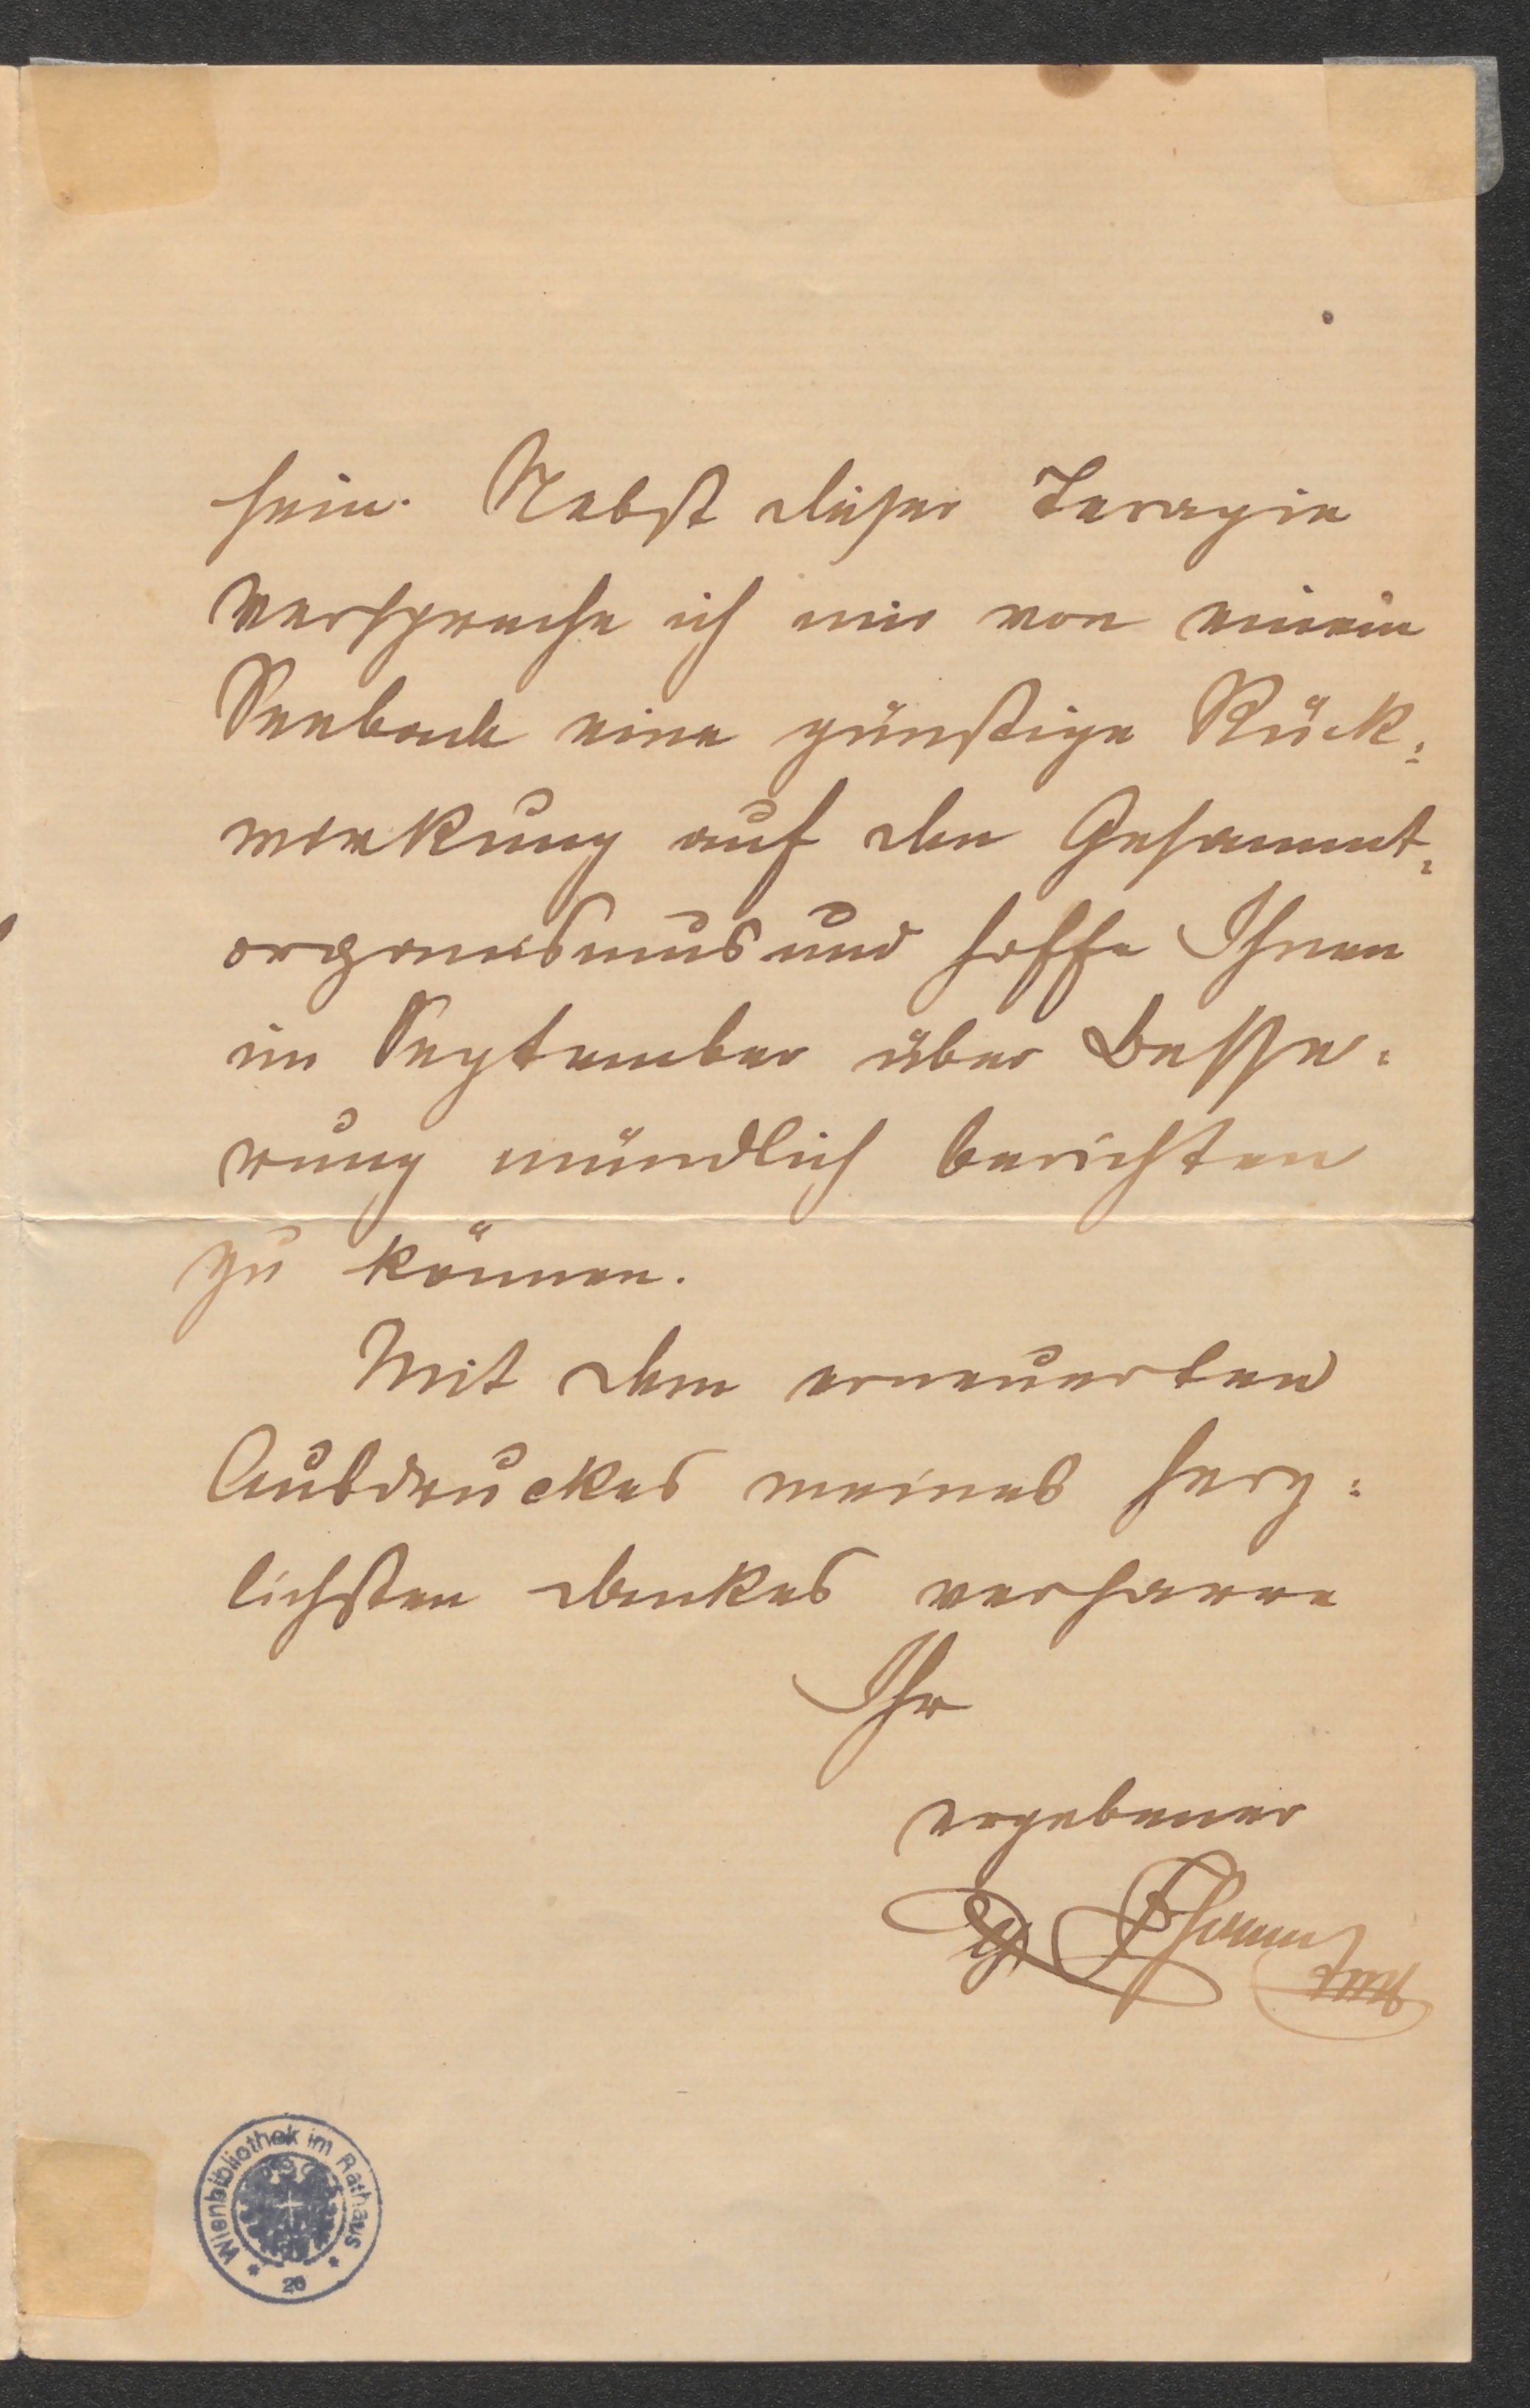 sein. Nebst dieser Terapie
verspreche ich mir von einem
Seebade eine günstige Rück:
wirkung auf den Gesammt:
organismus und hoffe Ihnen
im September über Besse:
rung mündlich berichten
zu können.
Mit dem erneuerten
Ausdruckes meines herz:
lichsten Dankes verharre
Ihr
ergebener
Wienbibliothek im Rathaus
* 20 *